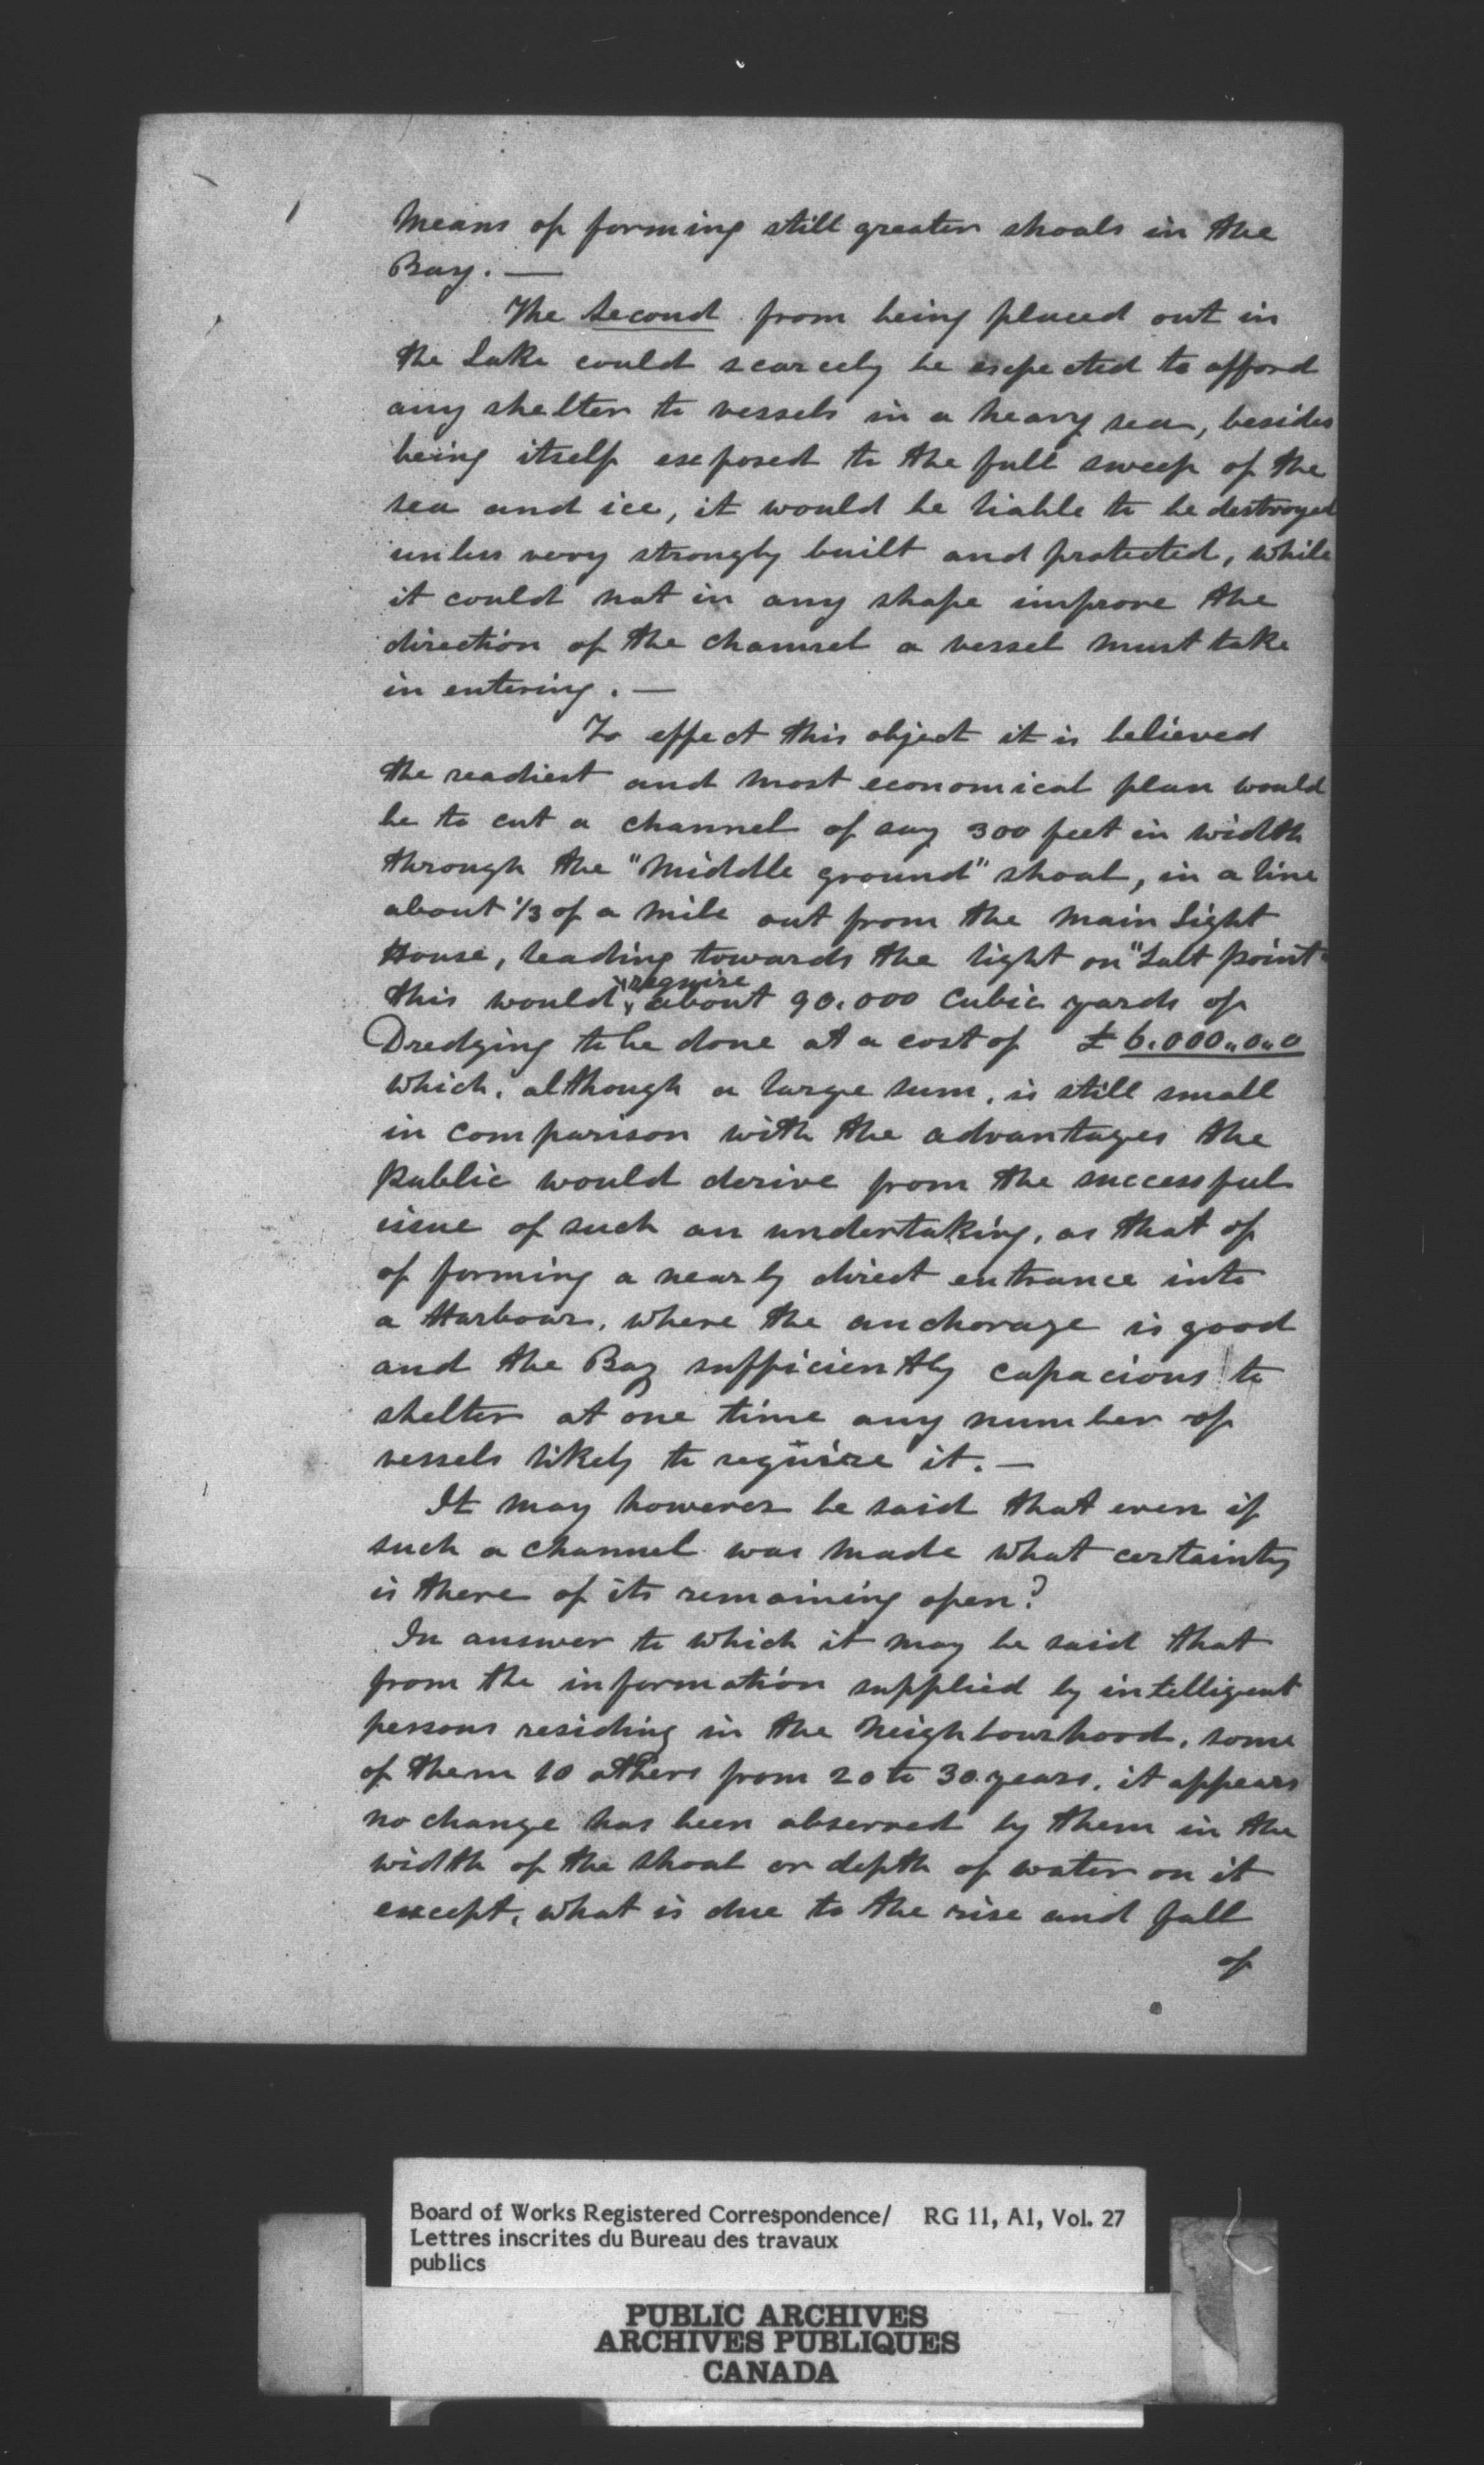 means of forming still greater shoals in the
Bay. —
The Second from being placed out in
the Lake could scarcely be expected to afford
any shelter to vessels in a heavy sea, besides
being itself exposed to the full sweep of the
sea and ice, it would be liable to be destroyed
unless very strongly built and protected, while
it could not in any shape improve the
direction of the channel a vessel must take
in entering. —
To effect this object it is believed
the readiest and most economical plan would
be to cut a channel of say 300 feet in width
through the "Middle ground" shoal, in a line
about 1/3 of a mile out from the main Light
House, leading towards the light on "Salt point"
require
this would about 90.000 Cubic yards of
Dredging to be done at a cost of £ 6.000.,0.,0
which, although a large sum, is still small
in comparison with the advantages the
public would derive from the successful
issue of such an undertaking, as that of
of forming a nearly direct entrance into
a Harbour, where the anchorage is good
and the Bay sufficiently capacious to
shelter at one time any number of
vessels likely to require it. —
It may however be said that even if
such a channel was made what certainty
is there of its remaining open?
In answer to which it may be said that
from the information supplied by intelligent
persons residing in the Neighbourhood, some
of them 10 others from 20 to 30 years, it appears
no change has been observed by them in the
width of the shoal or depth of water on it
except, what is due to the rise and fall
of
Board of Works Registered Correspondence/ RG 11, A1, Vol. 27
Lettres inscrites du Bureau des travaux
publics
PUBLIC ARCHIVES
ARCHIVES PUBLIQUES
CANADA